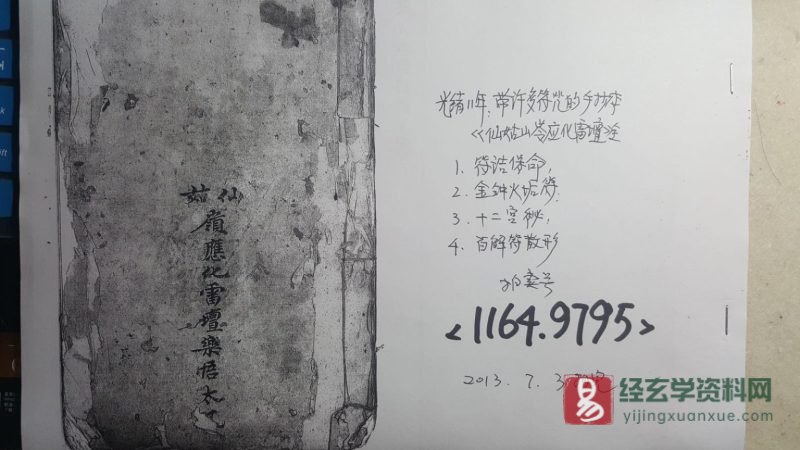 仙姑
嶺應化雷壇樂悟太
光绪11年,带许多符咒的手抄本
《仙姑山岺应化雷壇》全
1. 符诰保命,
2. 金钟火焰符.
3. 十二宫秘,
4. 百解符散形
拍卖号
<1164.9795>
2013. 7. 3
经玄学资料网
易
yijingxuanxue.com